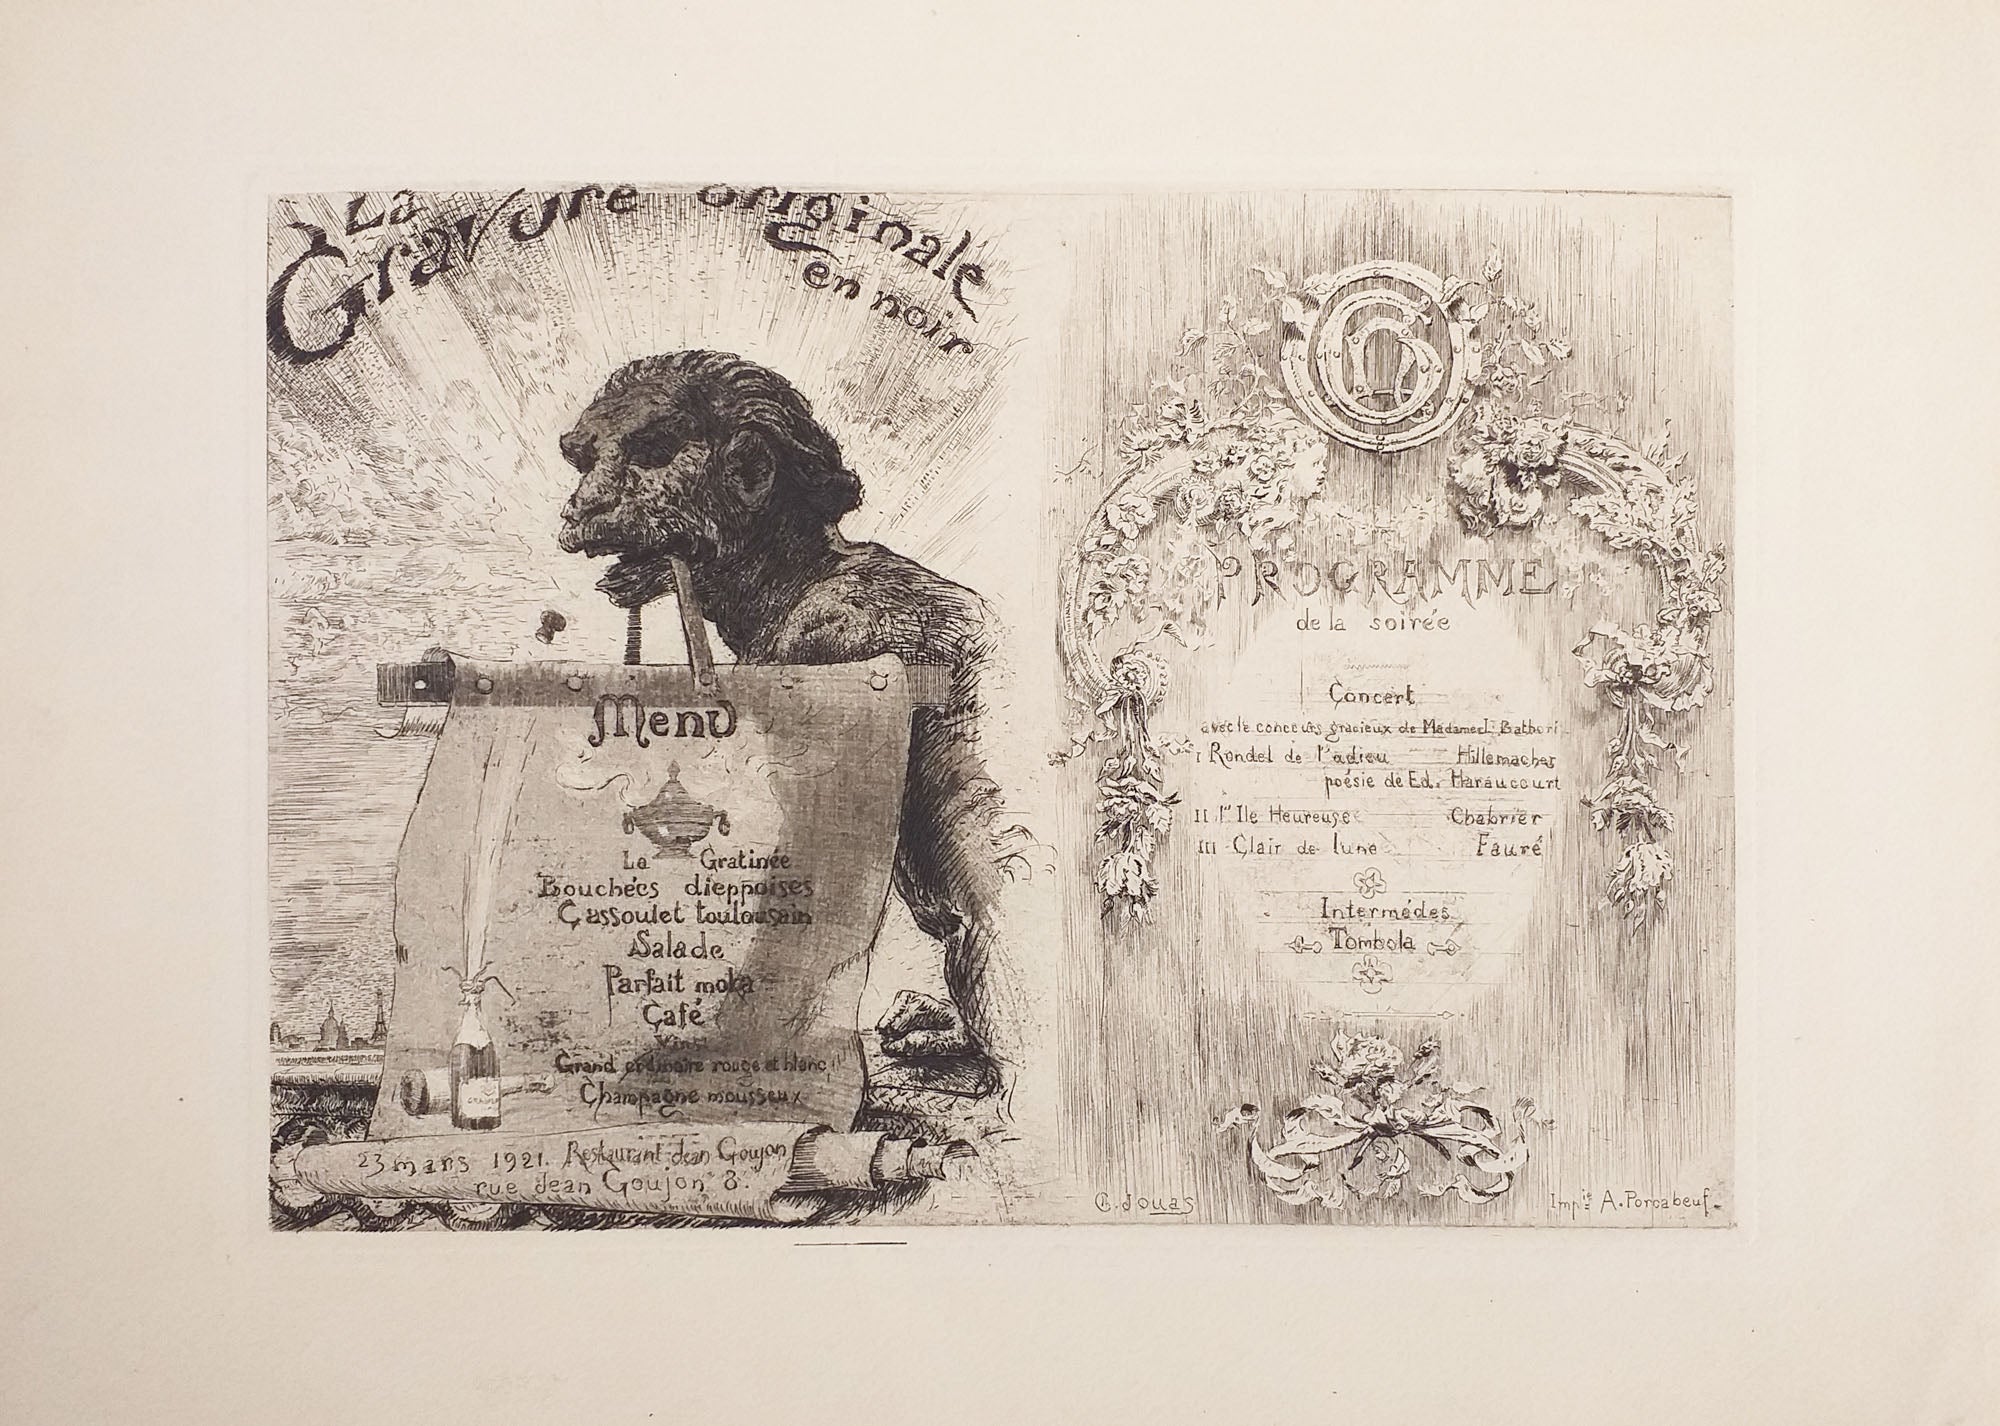 La
Gravure originale
en noir
Menu
La Gratinée
Bouchées dieppoises
Cassoulet toulousain
Salade
Parfait moka
Café
Vins
Grand ordinaire rouge et blanc
Champagne mousseux
23 mars 1921. Restaurant Jean Goujon
rue Jean Goujon 8.
PROGRAMME
de la soirée
Concert
avec le concours gracieux de Madame Bathori
I Rondel de l'adieu Hillemacher
poésie de Ed. Haraucourt
II l'Ile Heureuse Chabrier
III Clair de lune Fauré
Intermédes
Tombola
C. Jouas
Impie A. Porcabeuf.